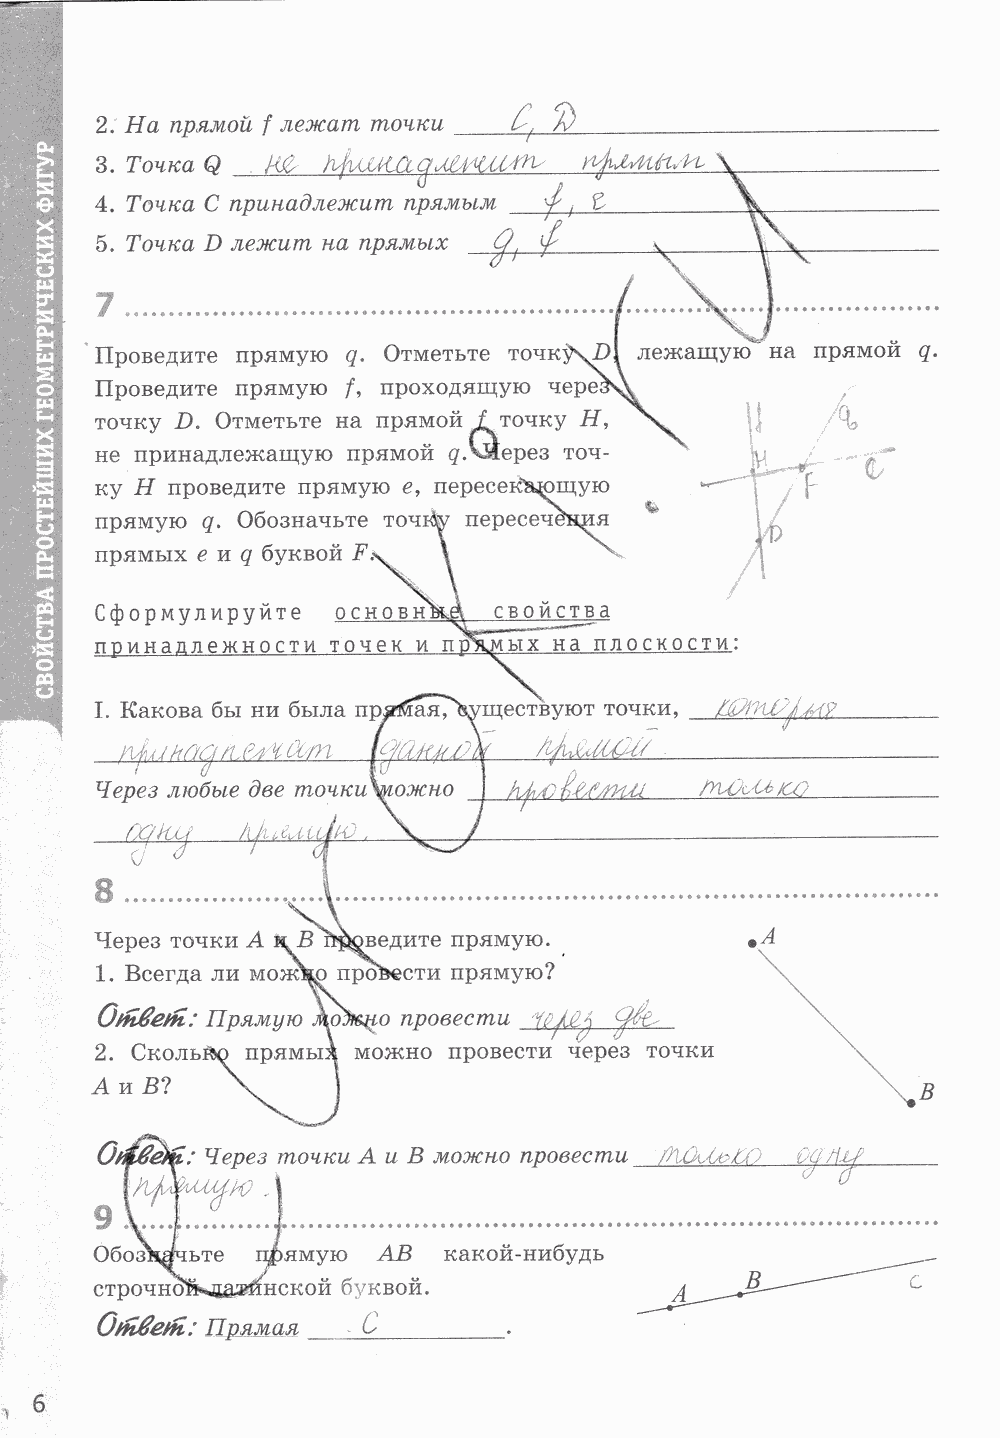 СВОЙСТВА ПРОСТЕЙШИХ ГЕОМЕТРИЧЕСКИХ ФИГУР
2. На прямой f лежат точки C, D
3. Точка Q не принадлежит прямым
4. Точка C принадлежит прямым f, e
5. Точка D лежит на прямых g, f
7
Проведите прямую q. Отметьте точку D, лежащую на прямой q.
Проведите прямую f, проходящую через
точку D. Отметьте на прямой f точку H,
не принадлежащую прямой q. Через точ-
ку H проведите прямую e, пересекающую
прямую q. Обозначьте точку пересечения
прямых e и q буквой F.
f
q
H
F
e
D
Сформулируйте основные свойства
принадлежности точек и прямых на плоскости:
I. Какова бы ни была прямая, существуют точки, которые
принадлежат данной прямой.
Через любые две точки можно провести только
одну прямую.
8
Через точки A и B проведите прямую.
1. Всегда ли можно провести прямую?
Ответ: Прямую можно провести через две
2. Сколько прямых можно провести через точки
A и B?
A
B
Ответ: Через точки A и B можно провести только одну
прямую.
9
Обозначьте прямую AB какой-нибудь
строчной латинской буквой.
Ответ: Прямая C.
A
B
C
6